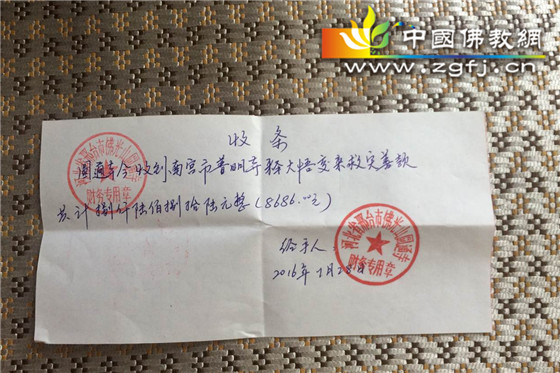 中國佛教網
www.zgfj.cn
收条
圆通寺今收到南宫市普明寺释大悟变来救灾善款
共计捌仟陆佰捌拾陆元整(8686.00元)
经手人
2016年1月28日
河北省邢台市佛光山圆通寺
财务专用章
河北省邢台市佛光山圆通寺
财务专用章